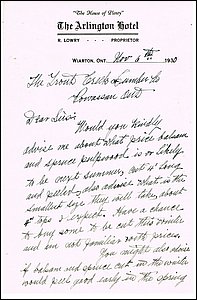 "The House of Plenty"
The Arlington Hotel
R. LOWRY - PROPRIETOR
WIARTON, ONT. Nov 6th 1930
The Trout Creek Lumber Co
Powassan Ont
Dear Sirs:
Would you kindly
advise me about what price balsam
and spruce pulpwood is or likely
to be next summer, cut 4' long
and peeled, also advise what is the
smallest size they will take, about
4" tops I expect. Have a chance
to buy some to be cut this winter
and am not familiar with prices.
You might also advise
if balsam and spruce cut in the winter
would peel good early in the spring